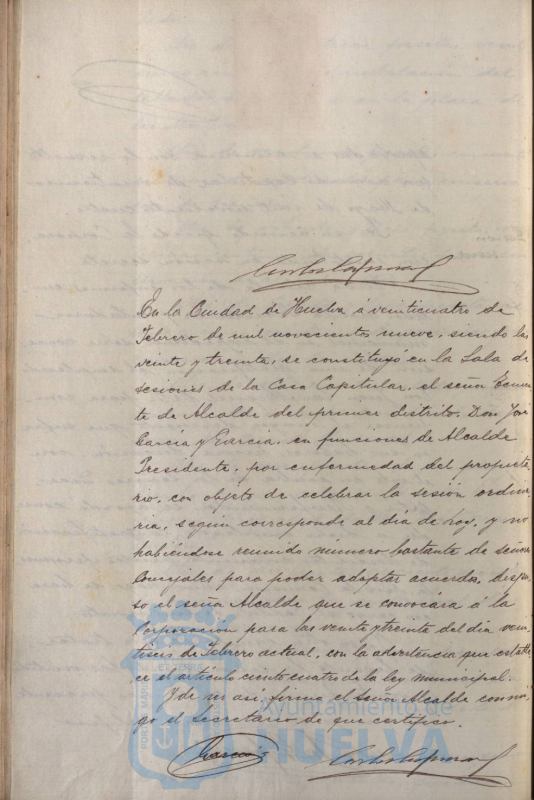 En la Ciudad de Huelva á veinticuatro de
Febrero de mil novecientos nueve, siendo las
veinte y treinta, se constituyó en la Sala de
sesiones de la Casa Capitular, el señor Tenien
te de Alcalde del primer distrito, Don José
García y García, en funciones de Alcalde
Presidente, por enfermedad del propieta
rio, con objeto de celebrar la sesión ordina
ria, según corresponde al día de hoy, y no
habiéndose reunido número bastante de señores
Concejales para poder adoptar acuerdos, dispu
so el señor Alcalde que se convocára á la
Corporación para las veinte y treinta del día vein
tiseis de Febrero actual, con la advertencia que estable
ce el artículo ciento cuatro de la ley municipal.
Y de mi así firma el señor Alcalde conmi
go el Secretario de que certifico.
García
Ayuntamiento de
HUELVA